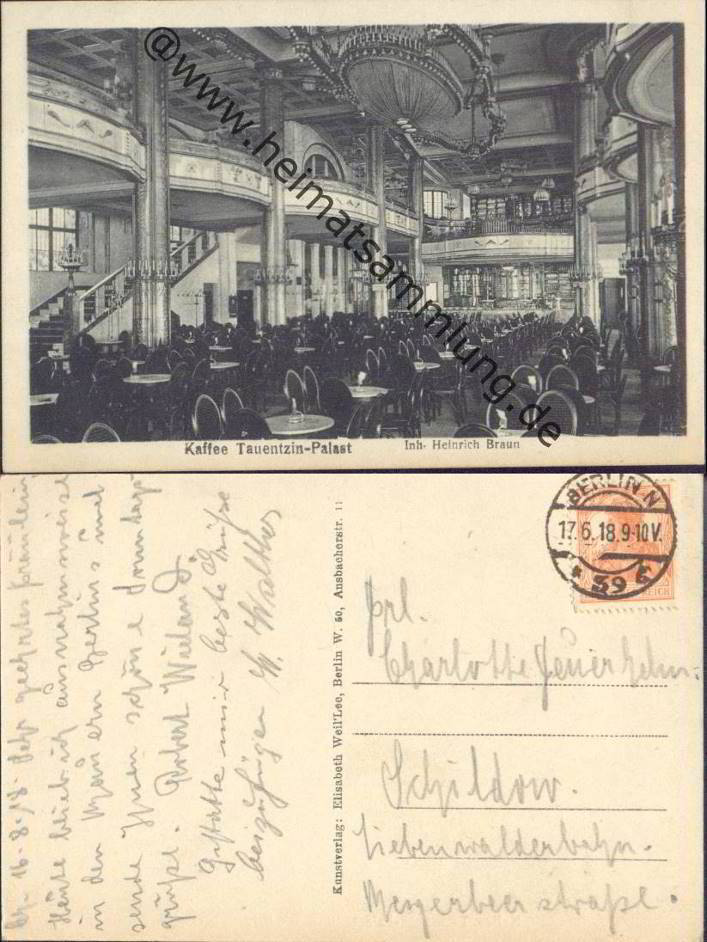 @www.heimatsammlung.de
Kaffee Tauentzin-Palast Inh. Heinrich Braun
BERLIN N
17.6.18.9-10V.
* 39 c
REICH
Kunstverlag: Elisabeth Weil'Lee, Berlin W. 50, Ansbacherstr. 11
Frl.
Charlotte
Schildow.
Liebenwalderbahn.
Meyerbeerstraße.
Sehr geehrtes Fräulein
Heute blieb ich ausnahmsweise
in den Mauern Berlins und
sende Ihnen schöne Sonntags
grüße. Robert Wieland
Gestatte mir beste Grüße
beizufügen Walther